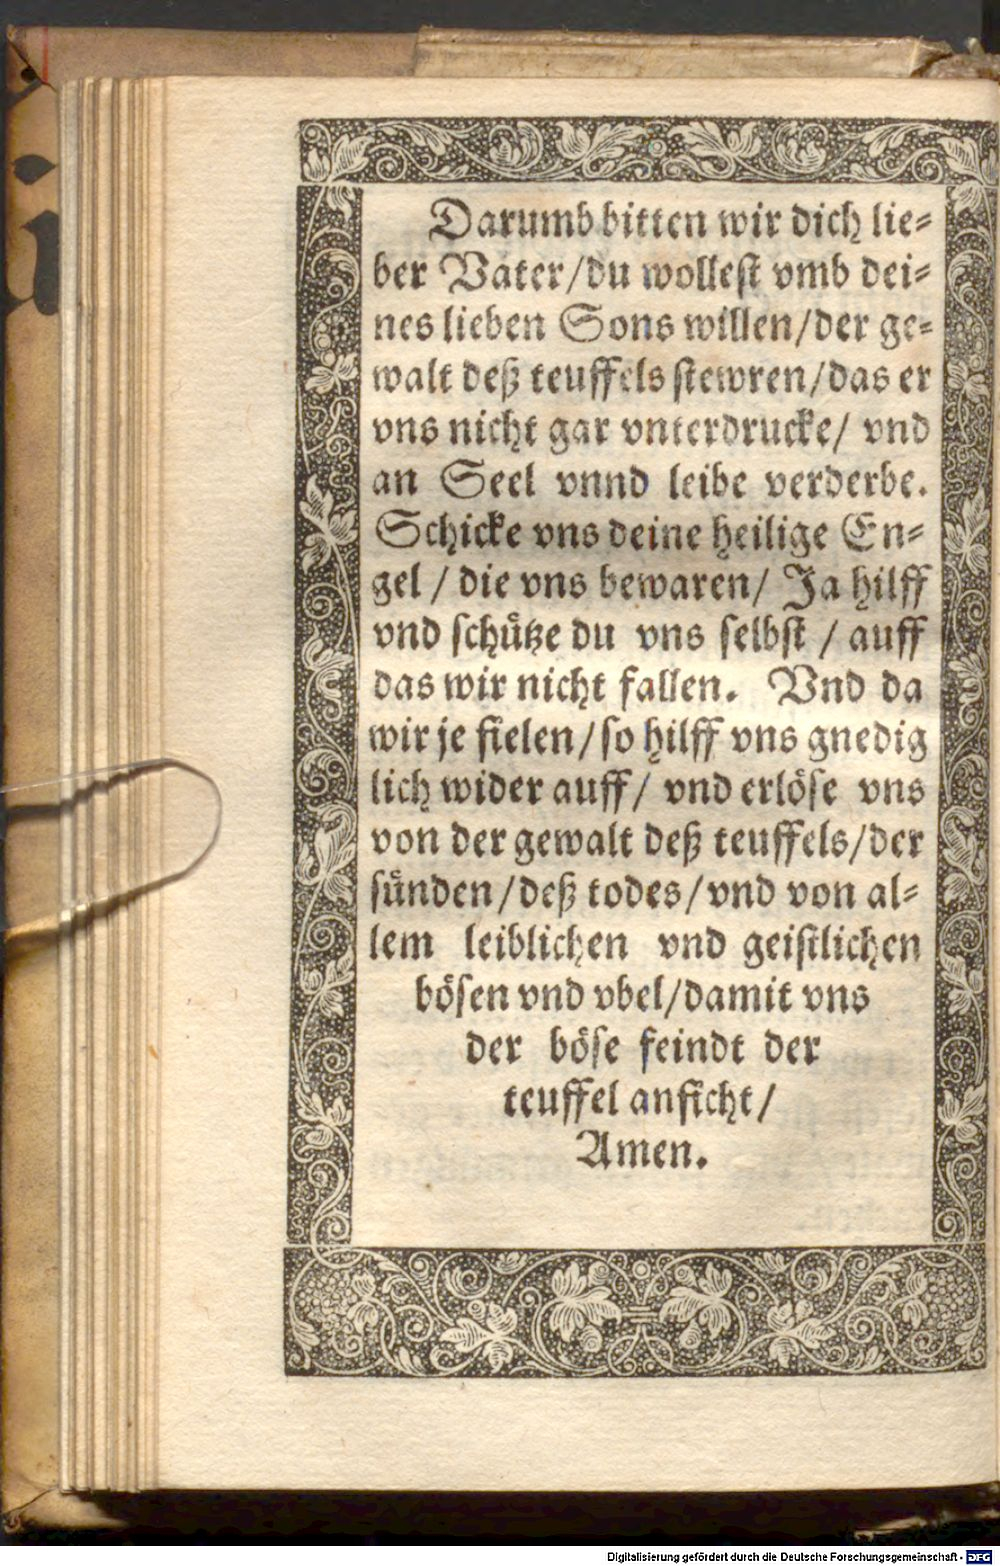 Darumb bitten wir dich lie⸗
ber Vater/du wolleſt vmb dei⸗
nes lieben Sons willen/der ge⸗
walt deß teuffels ſtewren/das er
vns nicht gar vnterdrucke/ vnd
an Seel vnnd leibe verderbe.
Schicke vns deine heilige En⸗
gel / die vns bewaren/ Ja hilff
vnd ſchuͤtze du vns ſelbſt / auff
das wir nicht fallen. Vnd da
wir je fielen/ſo hilff vns gnedig
lich wider auff/ vnd erloͤſe vns
von der gewalt deß teuffels/der
ſuͤnden/deß todes/vnd von al⸗
lem leiblichen vnd geiſtlichen
boͤſen vnd vbel/damit vns
der boͤſe feindt der
teuffel anficht/
Amen.
Digitalisierung gefördert durch die Deutsche Forschungsgemeinschaft - DFG